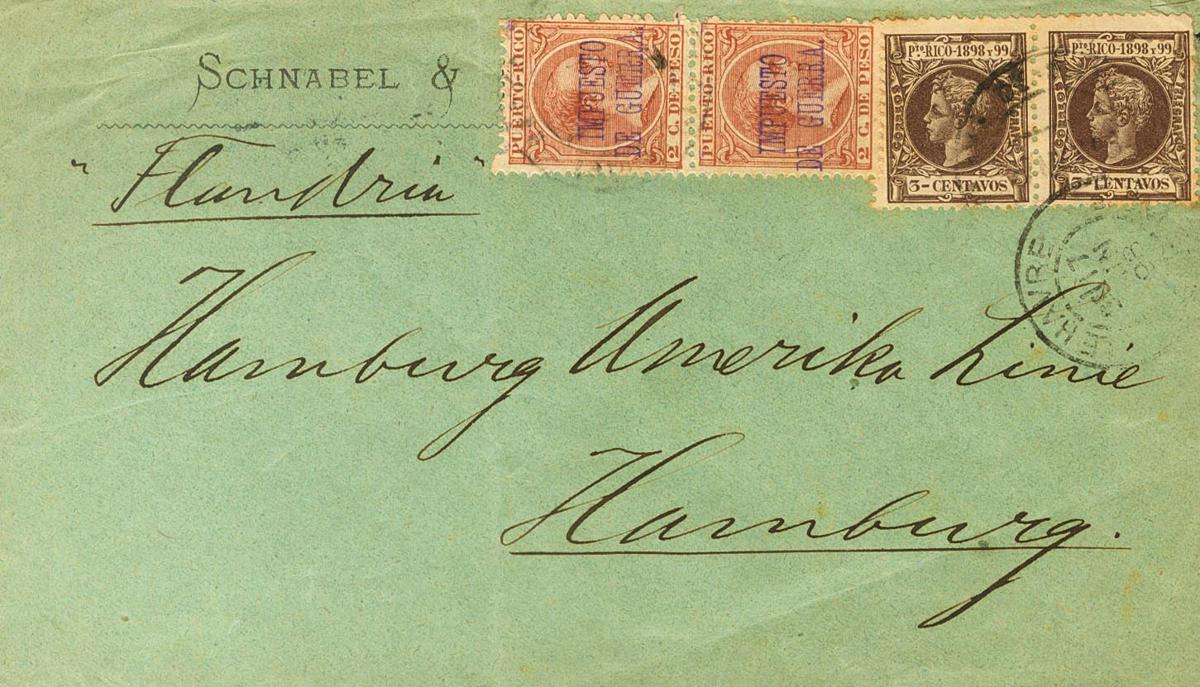 SCHNABEL &
PUERTO-RICO
2 C. DE PESO
IMPUESTO
DE GUERRA.
PUERTO-RICO
2 C. DE PESO
IMPUESTO
DE GUERRA.
Pto RICO-1898 Y 99
3-CENTAVOS
Pto RICO-1898 Y 99
3-CENTAVOS
"Flandria"
LE HAVRE
Hamburg Amerika Linie
Hamburg.